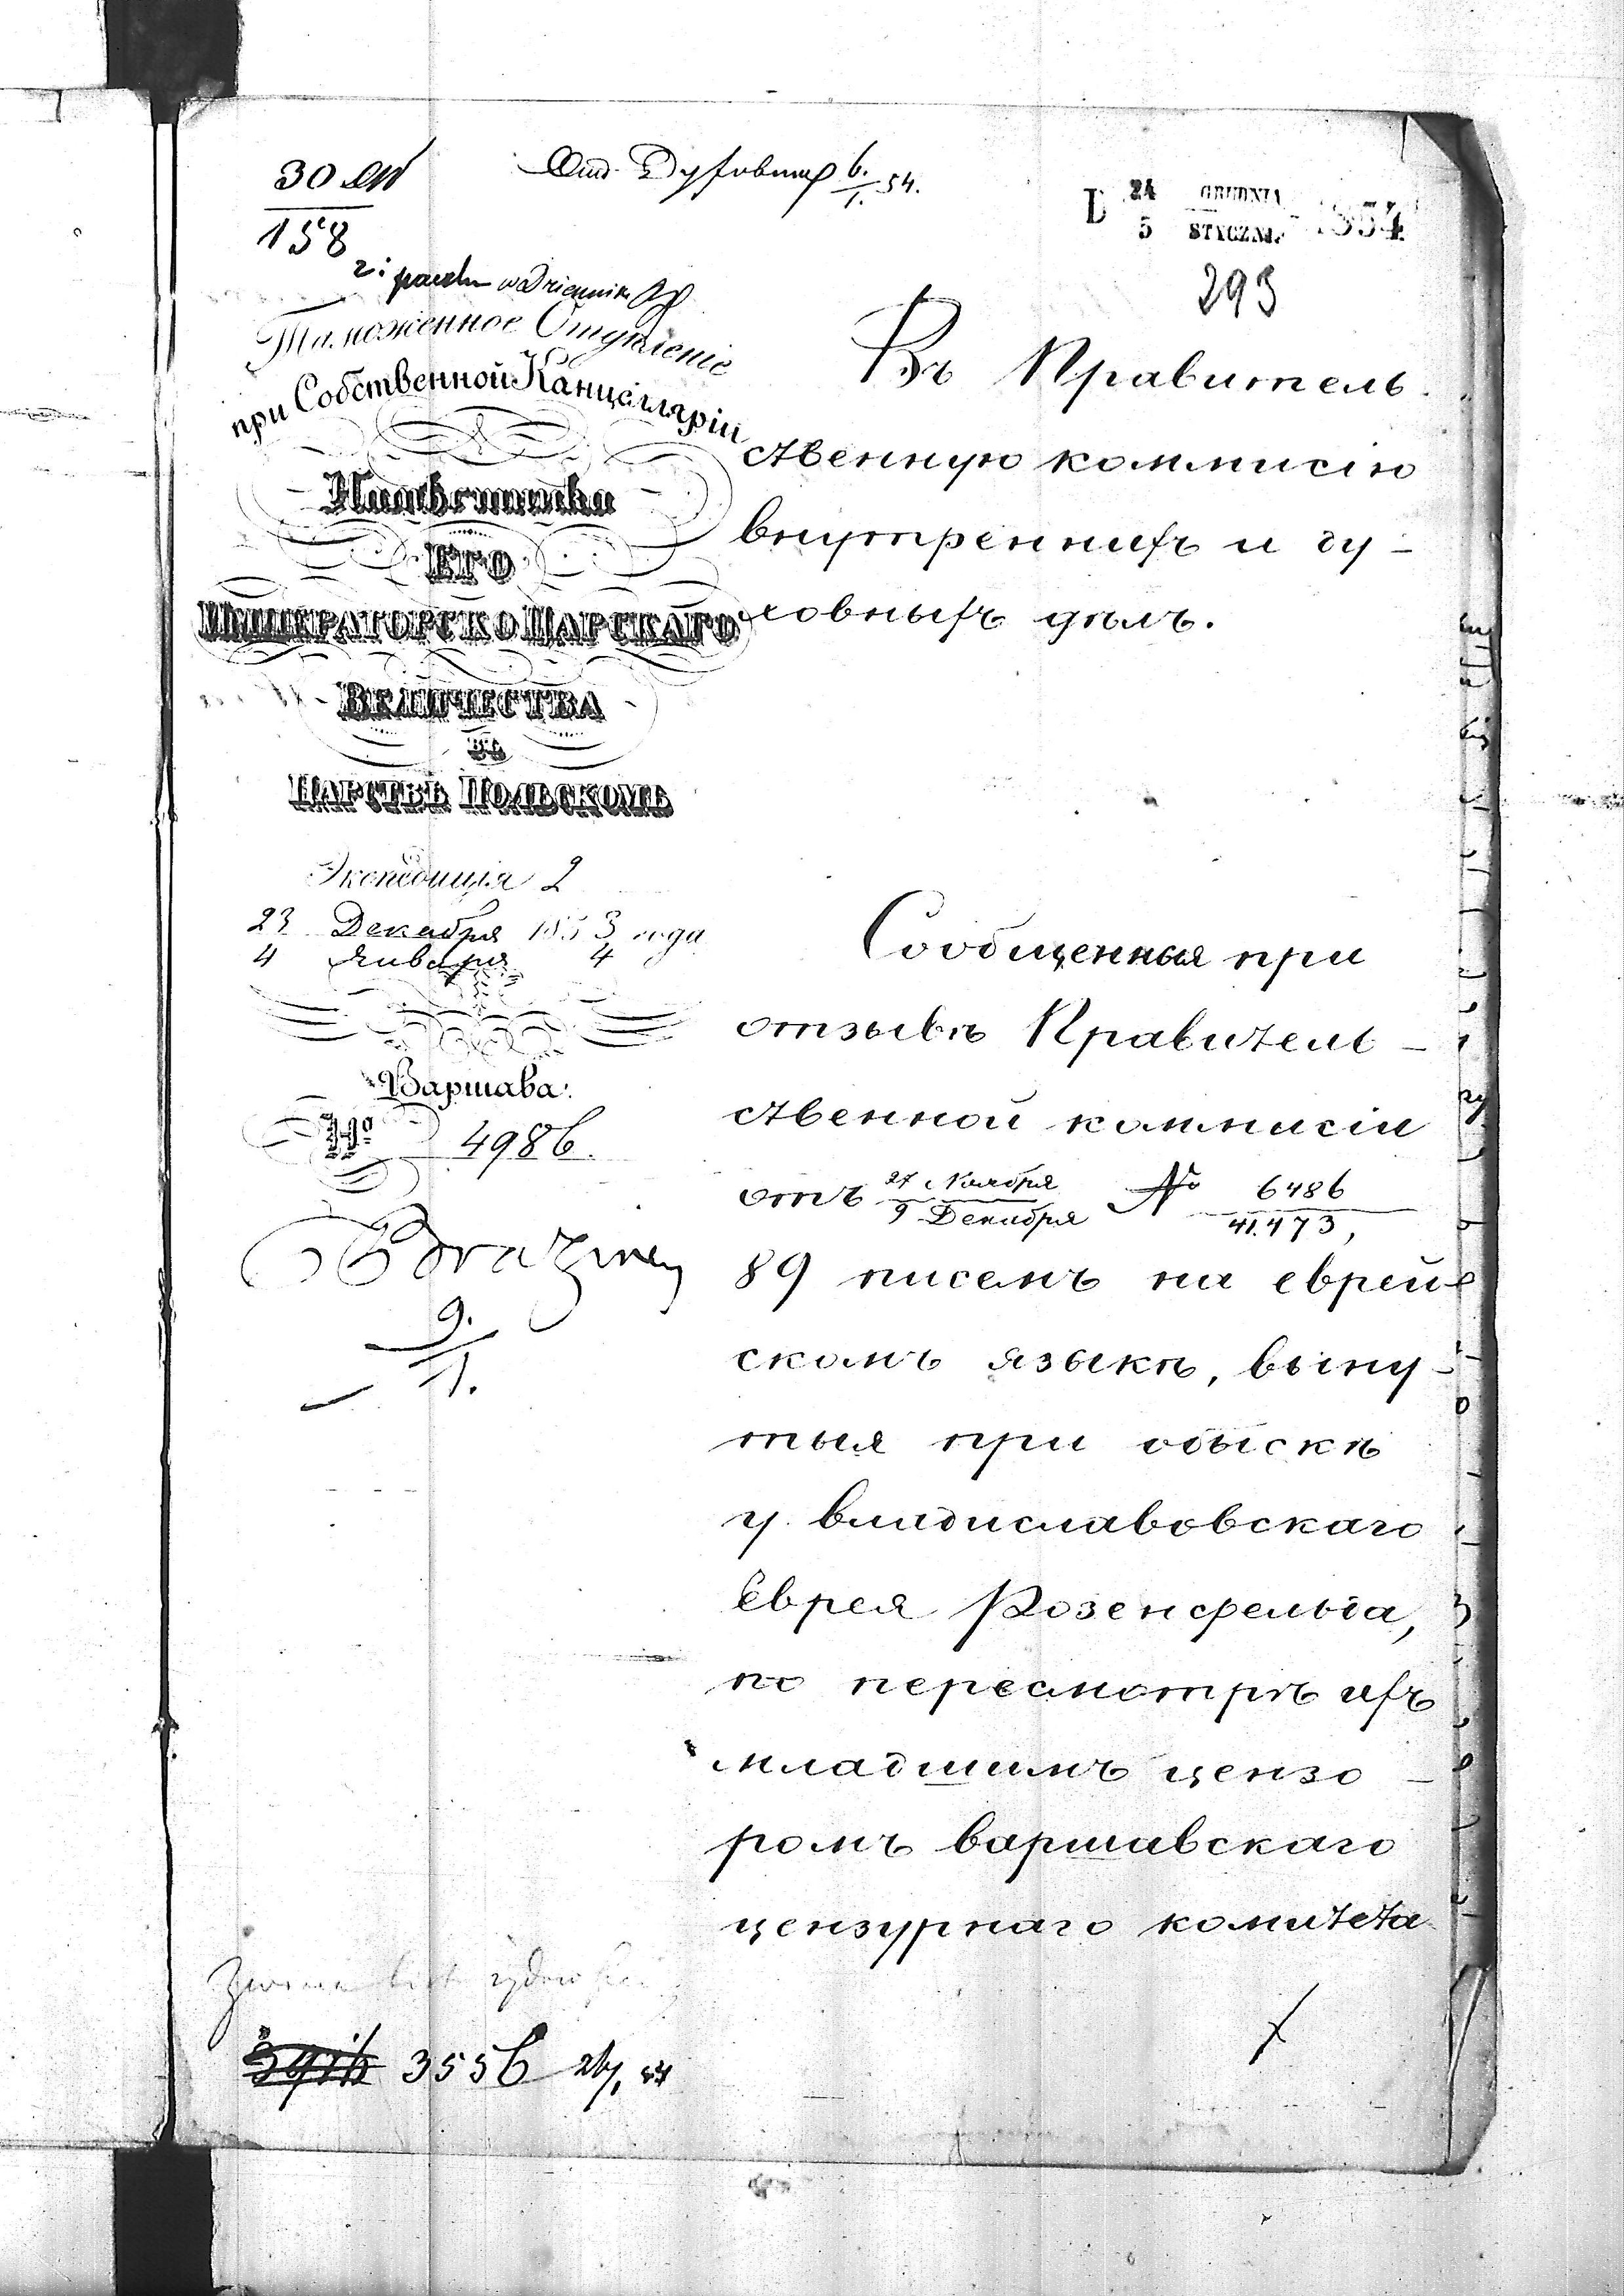 30
158
6./1. 54.
D 24/5 GRUDNIA/STYCZNI. 1854
293
Таможенное Отдѣленіе
при Собственной Канцелляріи
Намѣстника
ЕГО
ИМПЕРАТОРСКО ЦАРСКАГО
ВЕЛИЧЕСТВА
ВЪ
ЦАРСТВѢ ПОЛЬСКОМЪ
Экспедиція 2
23 Декабря 1853 года
4 Января 4
Варшава.
№ 4986.
9.
1.
Въ Правитель-
ственную коммисію
внутреннихъ и ду-
ховныхъ дѣлъ.
Сообщенныя при
отзывѣ Правитель-
ственной коммисіи
отъ 27 Ноября/9 Декабря № 6486/41.473,
89 писемъ на еврей-
скомъ языкѣ, выну-
тыя при обыскѣ
у владиславовскаго
Еврея Розенфельда,
по пересмотрѣ ихъ
младшимъ цензо-
ромъ варшавскаго
цензурнаго комитета
3556